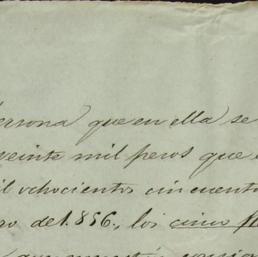 persona que en ella se
veinte mil pesos que
mil ochocientos cincuenta
de 1.856., los cinco
que